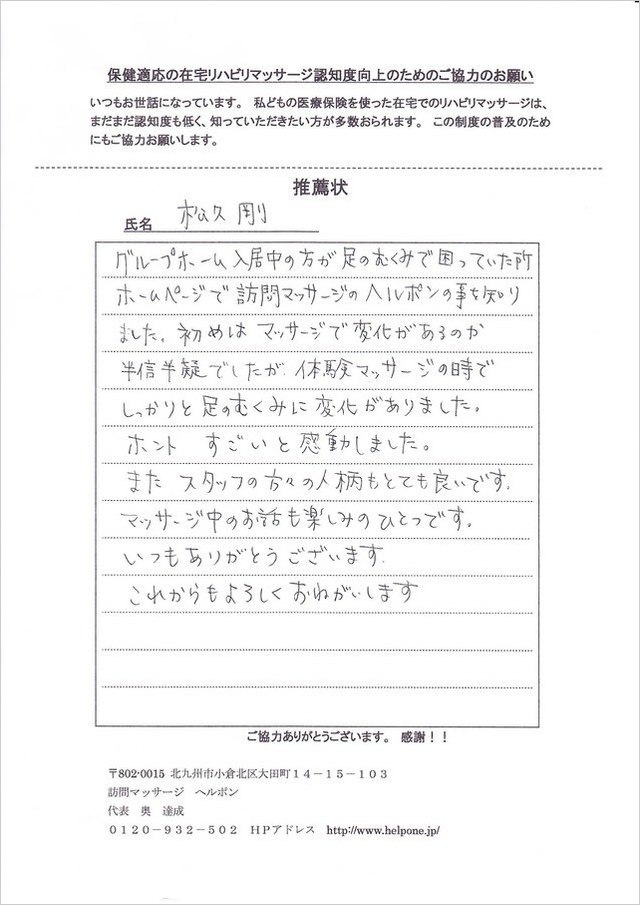 保健適応の在宅リハビリマッサージ認知度向上のためのご協力のお願い
いつもお世話になっています。 私どもの医療保険を使った在宅でのリハビリマッサージは、
まだまだ認知度も低く、知っていただきたい方が多数おられます。 この制度の普及のため
にもご協力お願いします。
推薦状
氏名 松久 剛
グループホーム入居中の方が足のむくみで困っていた所
ホームページで訪問マッサージのヘルポンの事を知り
ました。初めは マッサージで変化があるのか
半信半疑でしたが、体験マッサージの時で
しっかりと足のむくみに変化がありました。
ホント すごいと感動しました。
また スタッフの方々の人柄もとても良いです。
マッサージ中のお話も楽しみのひとつです。
いつもありがとうございます。
これからもよろしくおねがいします
ご協力ありがとうございます。 感謝！！
〒802-0015 北九州市小倉北区大田町１４－１５－１０３
訪問マッサージ ヘルポン
代表 奥 達成
０１２０－９３２－５０２ ＨＰアドレス http://www.helpone.jp/